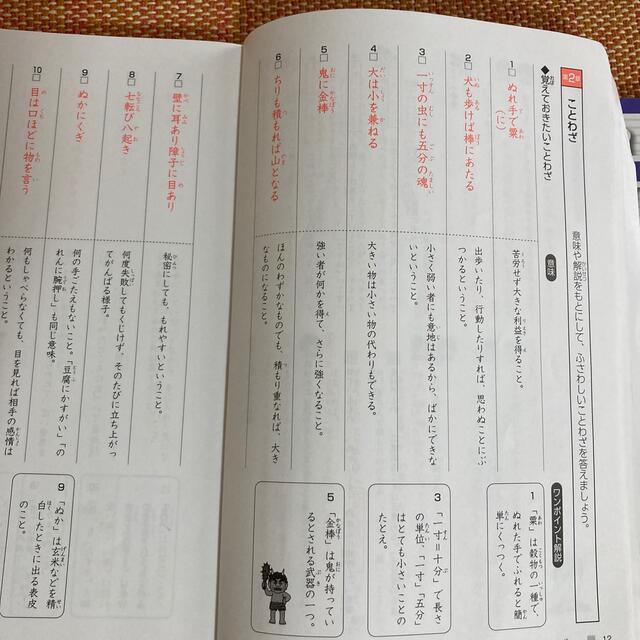 第2章
ことわざ
意味や解説をもとにして、ふさわしいことわざを答えましょう。
◆覚えておきたいことわざ
意味
ワンポイント解説
1
ぬれ手で粟
(に)
苦労せず大きな利益を得ること。
1
「粟」は穀物の一種で、
ぬれた手でふれると簡
単にくっつく。
2
犬も歩けば棒にあたる
出歩いたり、行動したりすれば、思わぬことにぶ
つかるということ。
3
一寸の虫にも五分の魂
小さく弱い者にも意地はあるから、ばかにできな
いということ。
3
「一寸=十分」で長さ
の単位、「一寸」「五分」
はとても小さいことの
たとえ。
4
大は小を兼ねる
大きい物は小さい物の代わりもできる。
5
鬼に金棒
強い者が何かを得て、さらに強くなること。
5
「金棒」は鬼が持ってい
るとされる武器の一つ。
6
ちりも積もれば山となる
ほんのわずかなものでも、積もり重なれば、大き
なものになること。
12
7
壁に耳あり障子に目あり
秘密にしても、もれやすいということ。
8
七転び八起き
何度失敗してもくじけず、そのたびに立ち上がっ
てがんばる様子。
9
ぬかにくぎ
何の手ごたえもないこと。「豆腐にかすがい」「の
れんに腕押し」も同じ意味。
9
「ぬか」は玄米などを精
白したときに出る表皮
のこと。
10
目は口ほどに物を言う
何もしゃべらなくても、目を見れば相手の感情は
わかるということ。